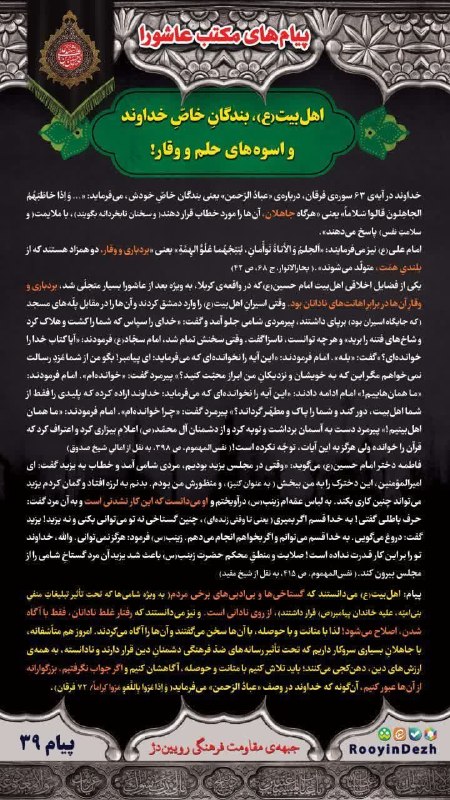 پیام‌های مکتب عاشورا
اهل‌بیت(ع)، بندگانِ خاصِ خداوند
و اسوه‌های حلم و وقار!
خداوند در آیه‌ی ۶۳ سوره‌ی فرقان، درباره‌ی «عبادُ الرّحمن» یعنی بندگان خاصّ خودش، می‌فرماید: «... وَ إذا خاطَبَهُمُ
الجاهِلونَ قالوا سَلاماً» یعنی «هرگاه جاهلان، آن‌ها را مورد خطاب قرار دهند( و سخنان نابخردانه بگویند)، با ملایمت( و
سلامتِ نفس) پاسخ می‌دهند».
امام علی(ع) نیز می‌فرمایند: «اَلحِلمُ وَ الأناةُ تَوأمانِ، یُنتِجُهُما عُلُوُّ الهِمَّةِ» یعنی «بردباری و وقار، دو همزاد هستند که از
بلندیِ همّت، متولّد می‌شوند».( بحارالانوار، ج ۶۸، ص ۴۲)
یکی از فضایل اخلاقی اهل‌بیت امام حسین(ع) که در واقعه‌ی کربلا، به ویژه بعد از عاشورا بسیار متجلّی شد، بردباری و
وقار آن‌ها در برابر اهانت‌های نادانان بود. وقتی اسیران اهل‌بیت(ع) را وارد دمشق کردند و آن‌ها را در مقابل پلّه‌های مسجد
(که جایگاه اسیران بود) برپای داشتند، پیرمردی شامی جلو آمد و گفت: «خدای را سپاس که شما را کشت و هلاک کرد
و شاخ‌های فتنه را برید» و هر چه توانست، ناسزا گفت. وقتی سخنش تمام شد، امام سجّاد(ع) فرمودند: «آیا کتاب خدا را
خوانده‌ای؟» گفت: «بله». امام فرمودند: «این آیه را نخوانده‌ای که می‌فرماید: ای پیامبر! بگو من از شما مُزد رسالت
نمی‌خواهم مگر این که به خویشان و نزدیکانِ من ابراز محبّت کنید؟» پیرمرد گفت: «خوانده‌ام». امام فرمودند:
«ما همان‌هاییم!» امام ادامه دادند: «این آیه را نخوانده‌ای که می‌فرماید: خداوند اراده کرده که پلیدی را فقط از
شما اهل‌بیت، دور کند و شما را پاک و مطهّر گرداند؟» پیرمرد گفت: «چرا خوانده‌ام». امام فرمودند: «ما همان
اهل‌بیتیم!» پیرمرد دست به آسمان برداشت و توبه کرد و از دشمنان آل محمّد(ص) اعلام بیزاری کرد و اعتراف کرد که
قرآن را خوانده ولی هرگز به این آیات، توجّه نکرده است!( نفس‌المهموم، ص ۳۹۸، به نقل از امالیِ شیخ صدوق)
فاطمه دختر امام حسین(ع) می‌گوید: «وقتی در مجلس یزید بودیم، مردی شامی آمد و خطاب به یزید گفت: ای
امیرالمؤمنین، این دخترک را به من ببخش ( به عنوان کنیز)، و منظورش من بودم. بدنم به لرزه افتاد و گمان کردم یزید
می‌تواند چنین کاری بکند. به لباس عمّه‌ام زینب(س) درآویختم و او می‌دانست که این کار نشدنی است و به آن مرد گفت:
حرف باطلی گفتی! به خدا قسم اگر بمیری( یعنی تا وقتی زنده‌ای)، چنین گستاخی نه تو می‌توانی بکنی و نه یزید! یزید
گفت: دروغ می‌گویی. به خدا قسم می‌توانم و اگر بخواهم انجام می‌دهم. زینب(س) فرمود: هرگز نمی‌توانی. والله، خداوند
تو را بر این کار قدرت نداده است! صلابت و منطق محکم حضرت زینب(س) باعث شد یزید آن مردِ گستاخِ شامی را از
مجلس بیرون کند. ( نفس‌المهموم، ص ۴۱۵، به نقل از شیخ مفید)
پیام: اهل‌بیت(ع)، می‌دانستند که گستاخی‌ها و بی‌ادبی‌های برخی مردم( به ویژه شامی‌ها که تحت تأثیر تبلیغاتِ منفیِ
بنی‌امیّه، علیه خاندان پیامبر(ص)، قرار داشتند)، از روی نادانی است. و نیز می‌دانستند که رفتار غلط نادانان، فقط با آگاه
شدن، اصلاح می‌شود؛ لذا با متانت و با حوصله، با آن‌ها سخن می‌گفتند و آن‌ها را آگاه می‌کردند. امروز هم متأسّفانه،
با جاهلانِ بسیاری سروکار داریم که تحت تأثیر رسانه‌های ضدّ فرهنگی دشمنانِ دین قرار دارند و نادانسته، به همه‌ی
ارزش‌های دین، دهن‌کجی می‌کنند؛ باید تلاش کنیم با متانت و حوصله، آگاهشان کنیم و اگر جواب نگرفتیم، بزرگوارانه
از آن‌ها عبور کنیم، آن‌گونه که خداوند در وصف «عبادُ الرّحمن» می‌فرماید( وَ إذا مَرّوا بِاللَّغوِ مَرّوا کِراماً/ ۷۲ فرقان).
پیام ۳۹
جبهه‌ی مقاومت فرهنگی رویین‌دژ
RooyinDezh